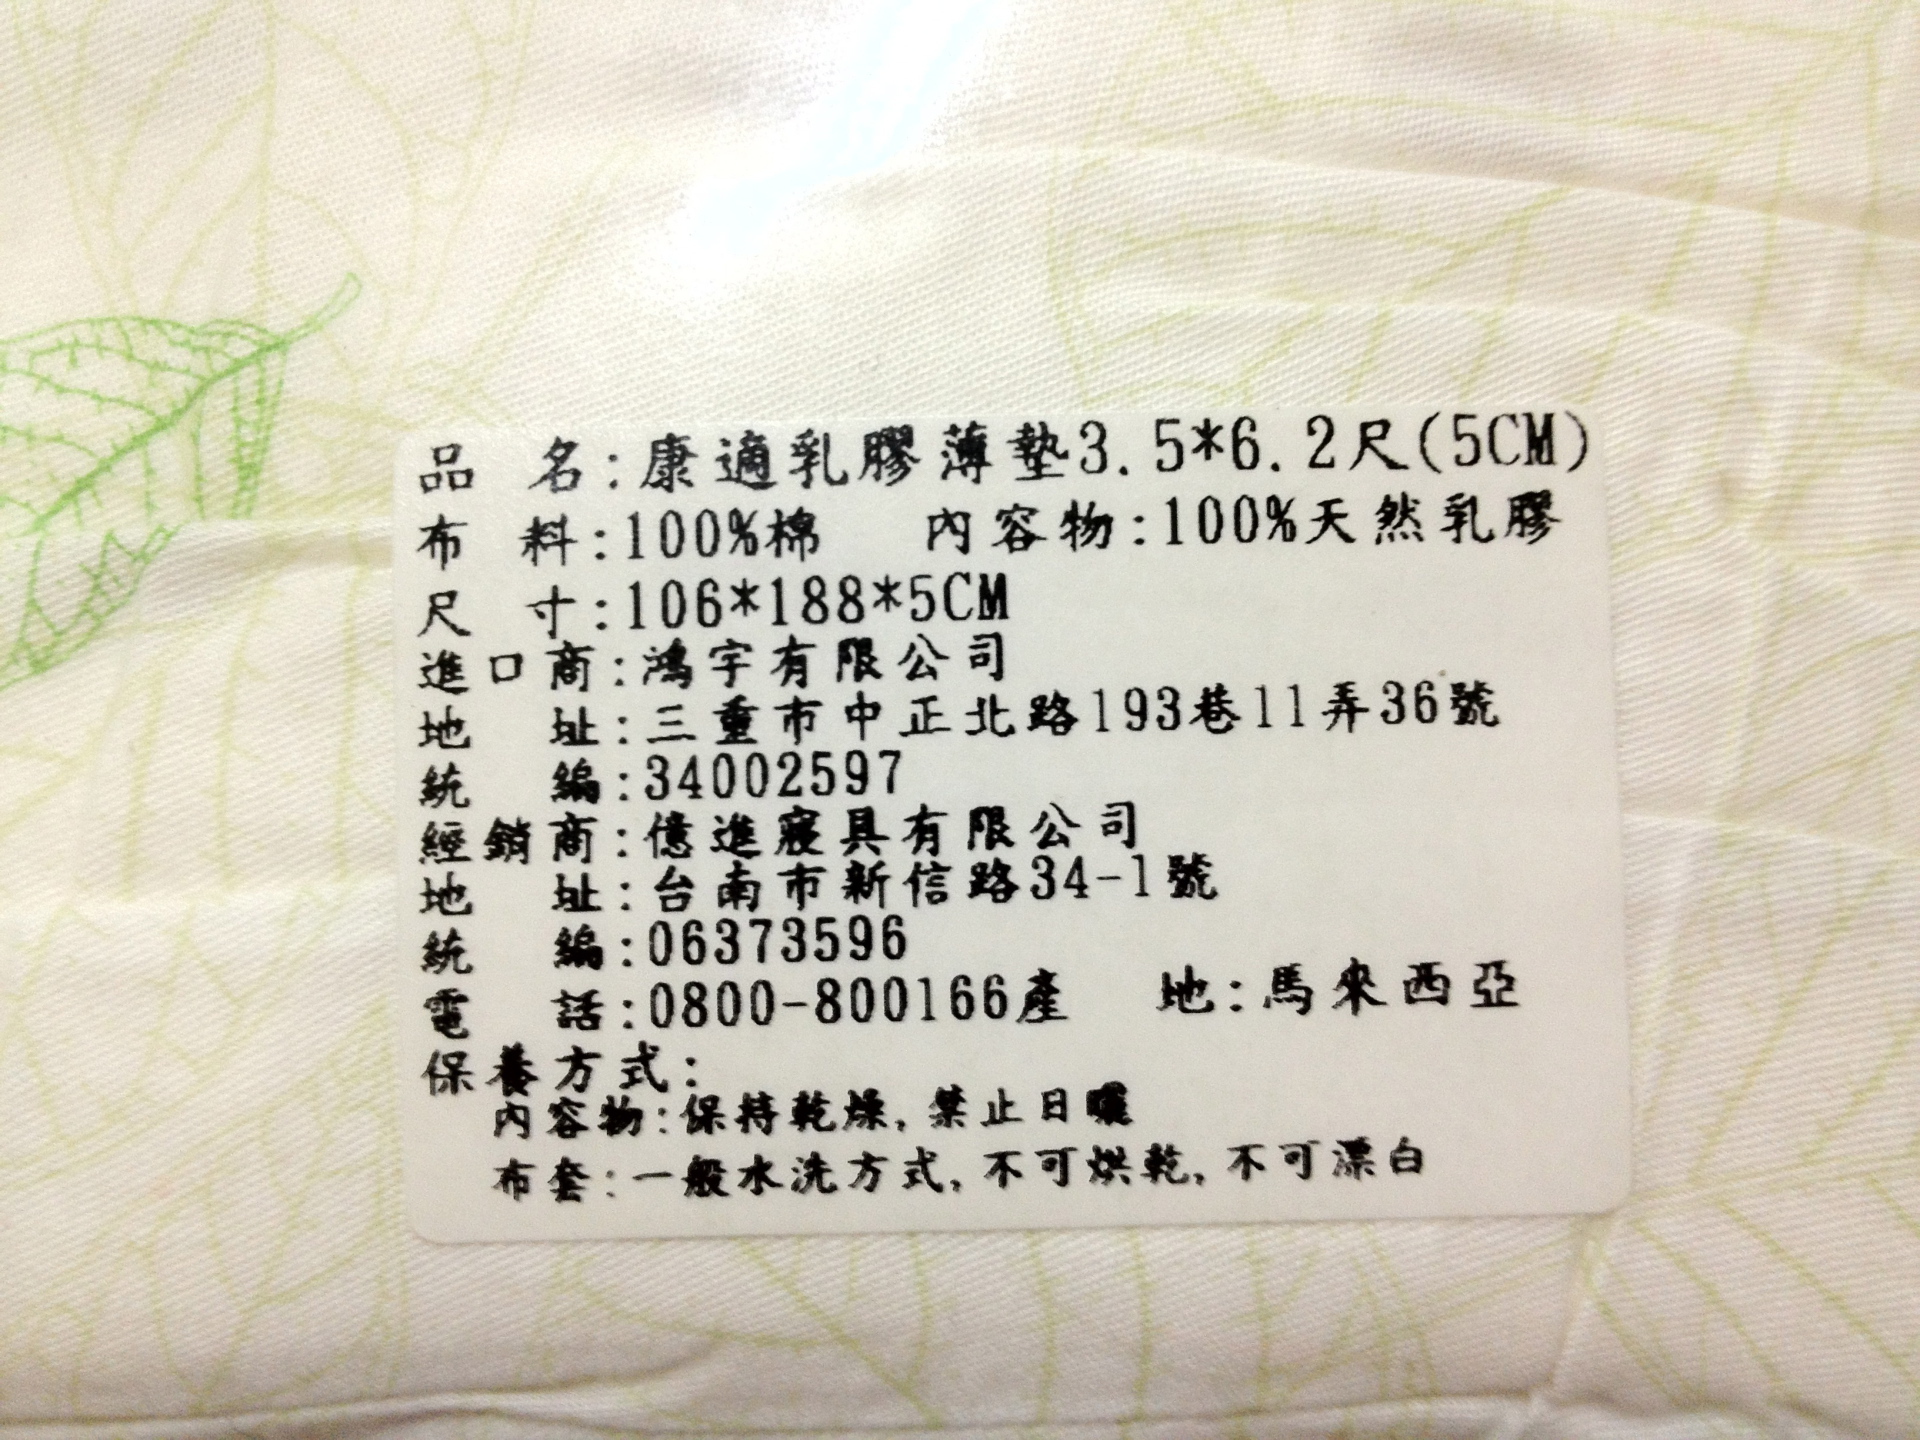 品 名:康適乳膠薄墊3.5*6.2尺(5CM)
布 料:100%棉 內容物:100%天然乳膠
尺 寸:106*188*5CM
進口商:鴻宇有限公司
地 址:三重市中正北路193巷11弄36號
統 編:34002597
經銷商:億進寢具有限公司
地 址:台南市新信路34-1號
統 編:06373596
電 話:0800-800166產 地:馬來西亞
保養方式:
內容物:保持乾燥,禁止日曬
布套:一般水洗方式,不可烘乾,不可漂白